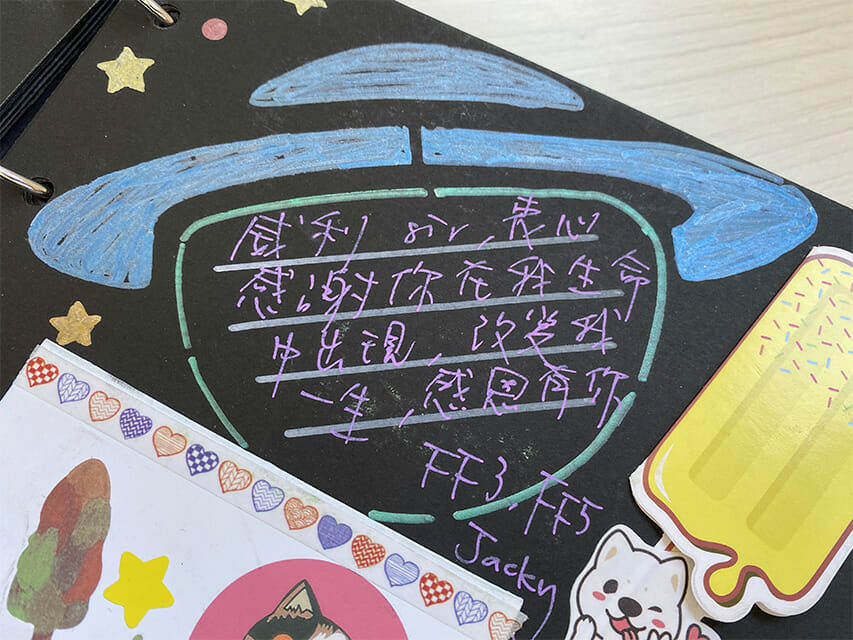 威利 sir, 衷心
感謝你在我生命
中出現, 改變我
一生, 感恩有你
FF3, FF5
Jacky